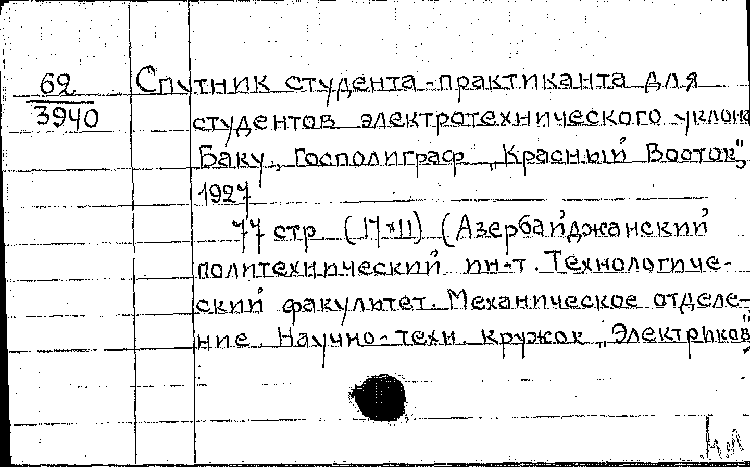 62 Спутник студента-практиканта для
3940 студентов электротехнического уклона
Баку, Госполиграф „Красный Восток",
1927
77 стр (17×11) (Азербайджанский
политехнический ин-т. Технологиче-
ский факультет. Механическое отделе-
ние. Научно-техн. кружок „Электриков"